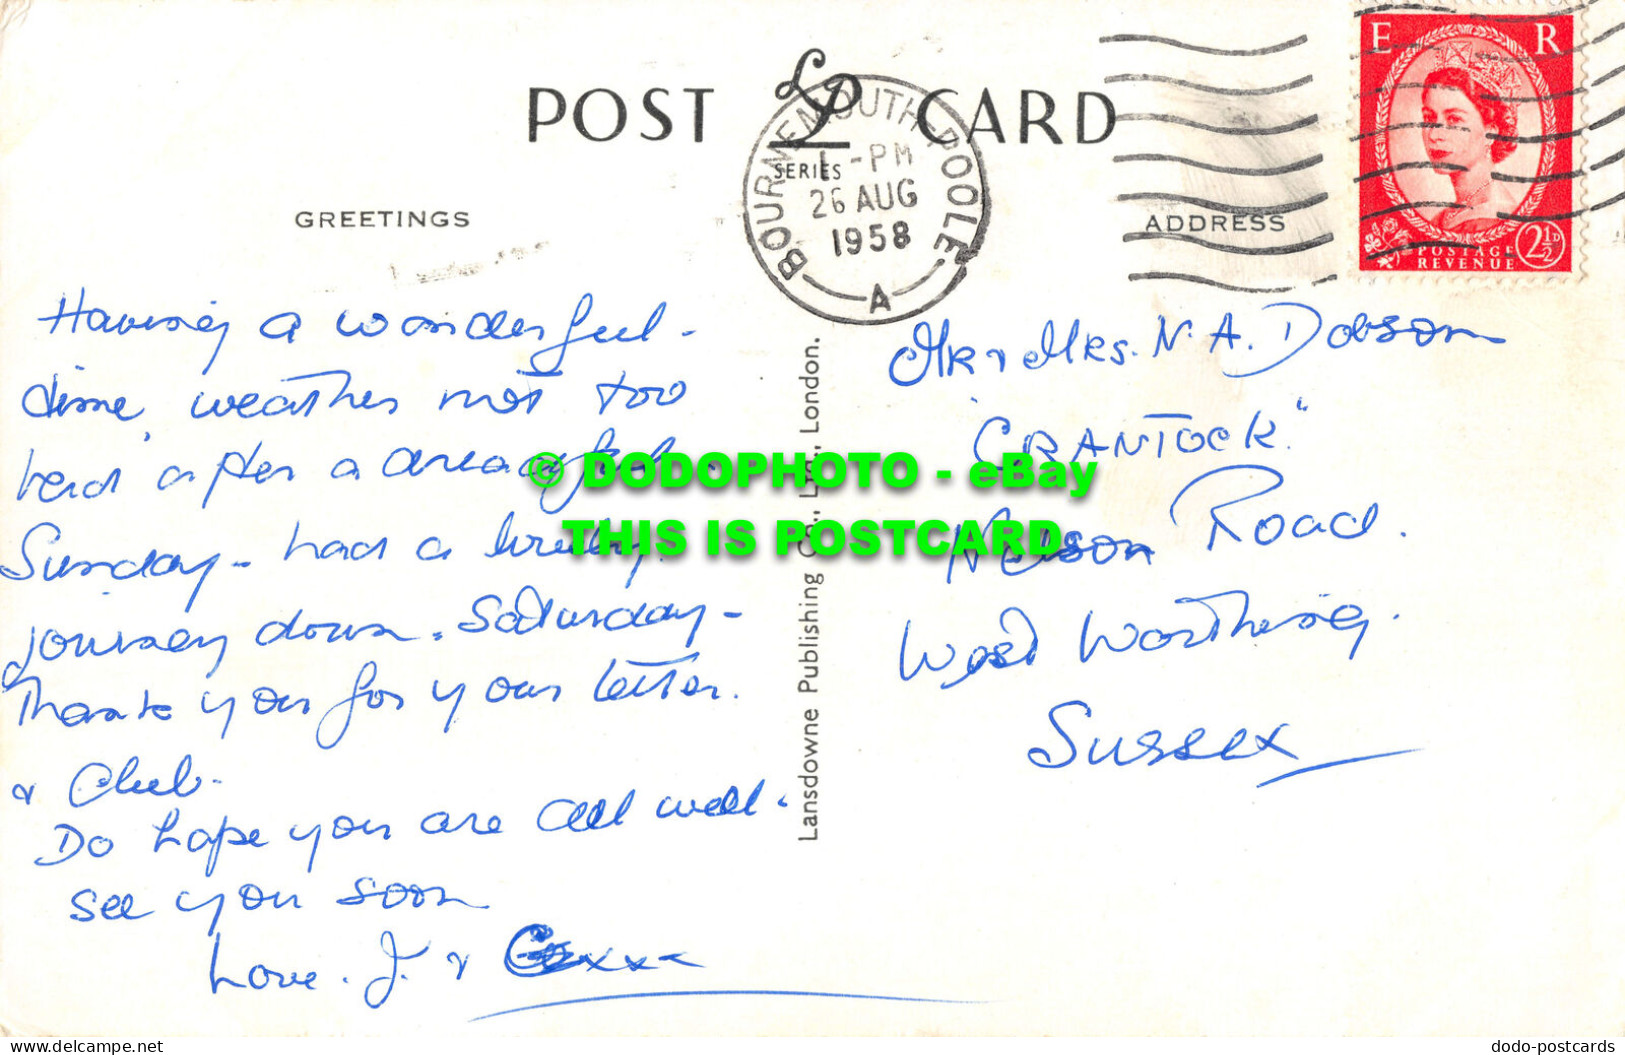 POST CARD
LP
SERIES
BOURNEMOUTH-POOLE
1-PM
26 AUG
1958
A
E R
POSTAGE
REVENUE
2½D
GREETINGS
ADDRESS
Having a wonderful
time, weather not too
bad after a dreadful
Sunday - had a lovely
journey down. Saturday -
Thanks you for your letter.
& Club.
Do hope you are all well.
see you soon
Love. J. &
Lansdowne Publishing Co., Ltd., London.
Mr & Mrs. N. A. Dobson
"CRANTOCK"
Nelson Road.
West Worthing.
Sussex
© DODOPHOTO - eBay
THIS IS POSTCARD
www.delcampe.net
dodo-postcards